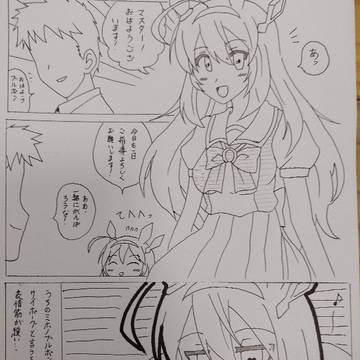 あっ
マスター
おはようござ
います!
おはよう
ブルボン
今日も1日
ご指導よろしく
お願いします!
ああ
一緒にがんば
ろうな!
うちのミホノブルボ
サイボーグと言う
表情筋が硬い…